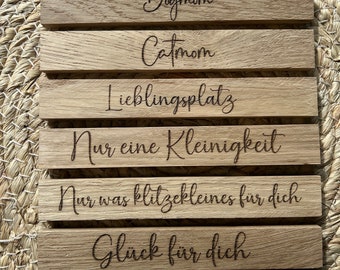 Dogmom
Catmom
Lieblingsplatz
Nur eine Kleinigkeit
Nur was klitzekleines für dich
Glück für dich